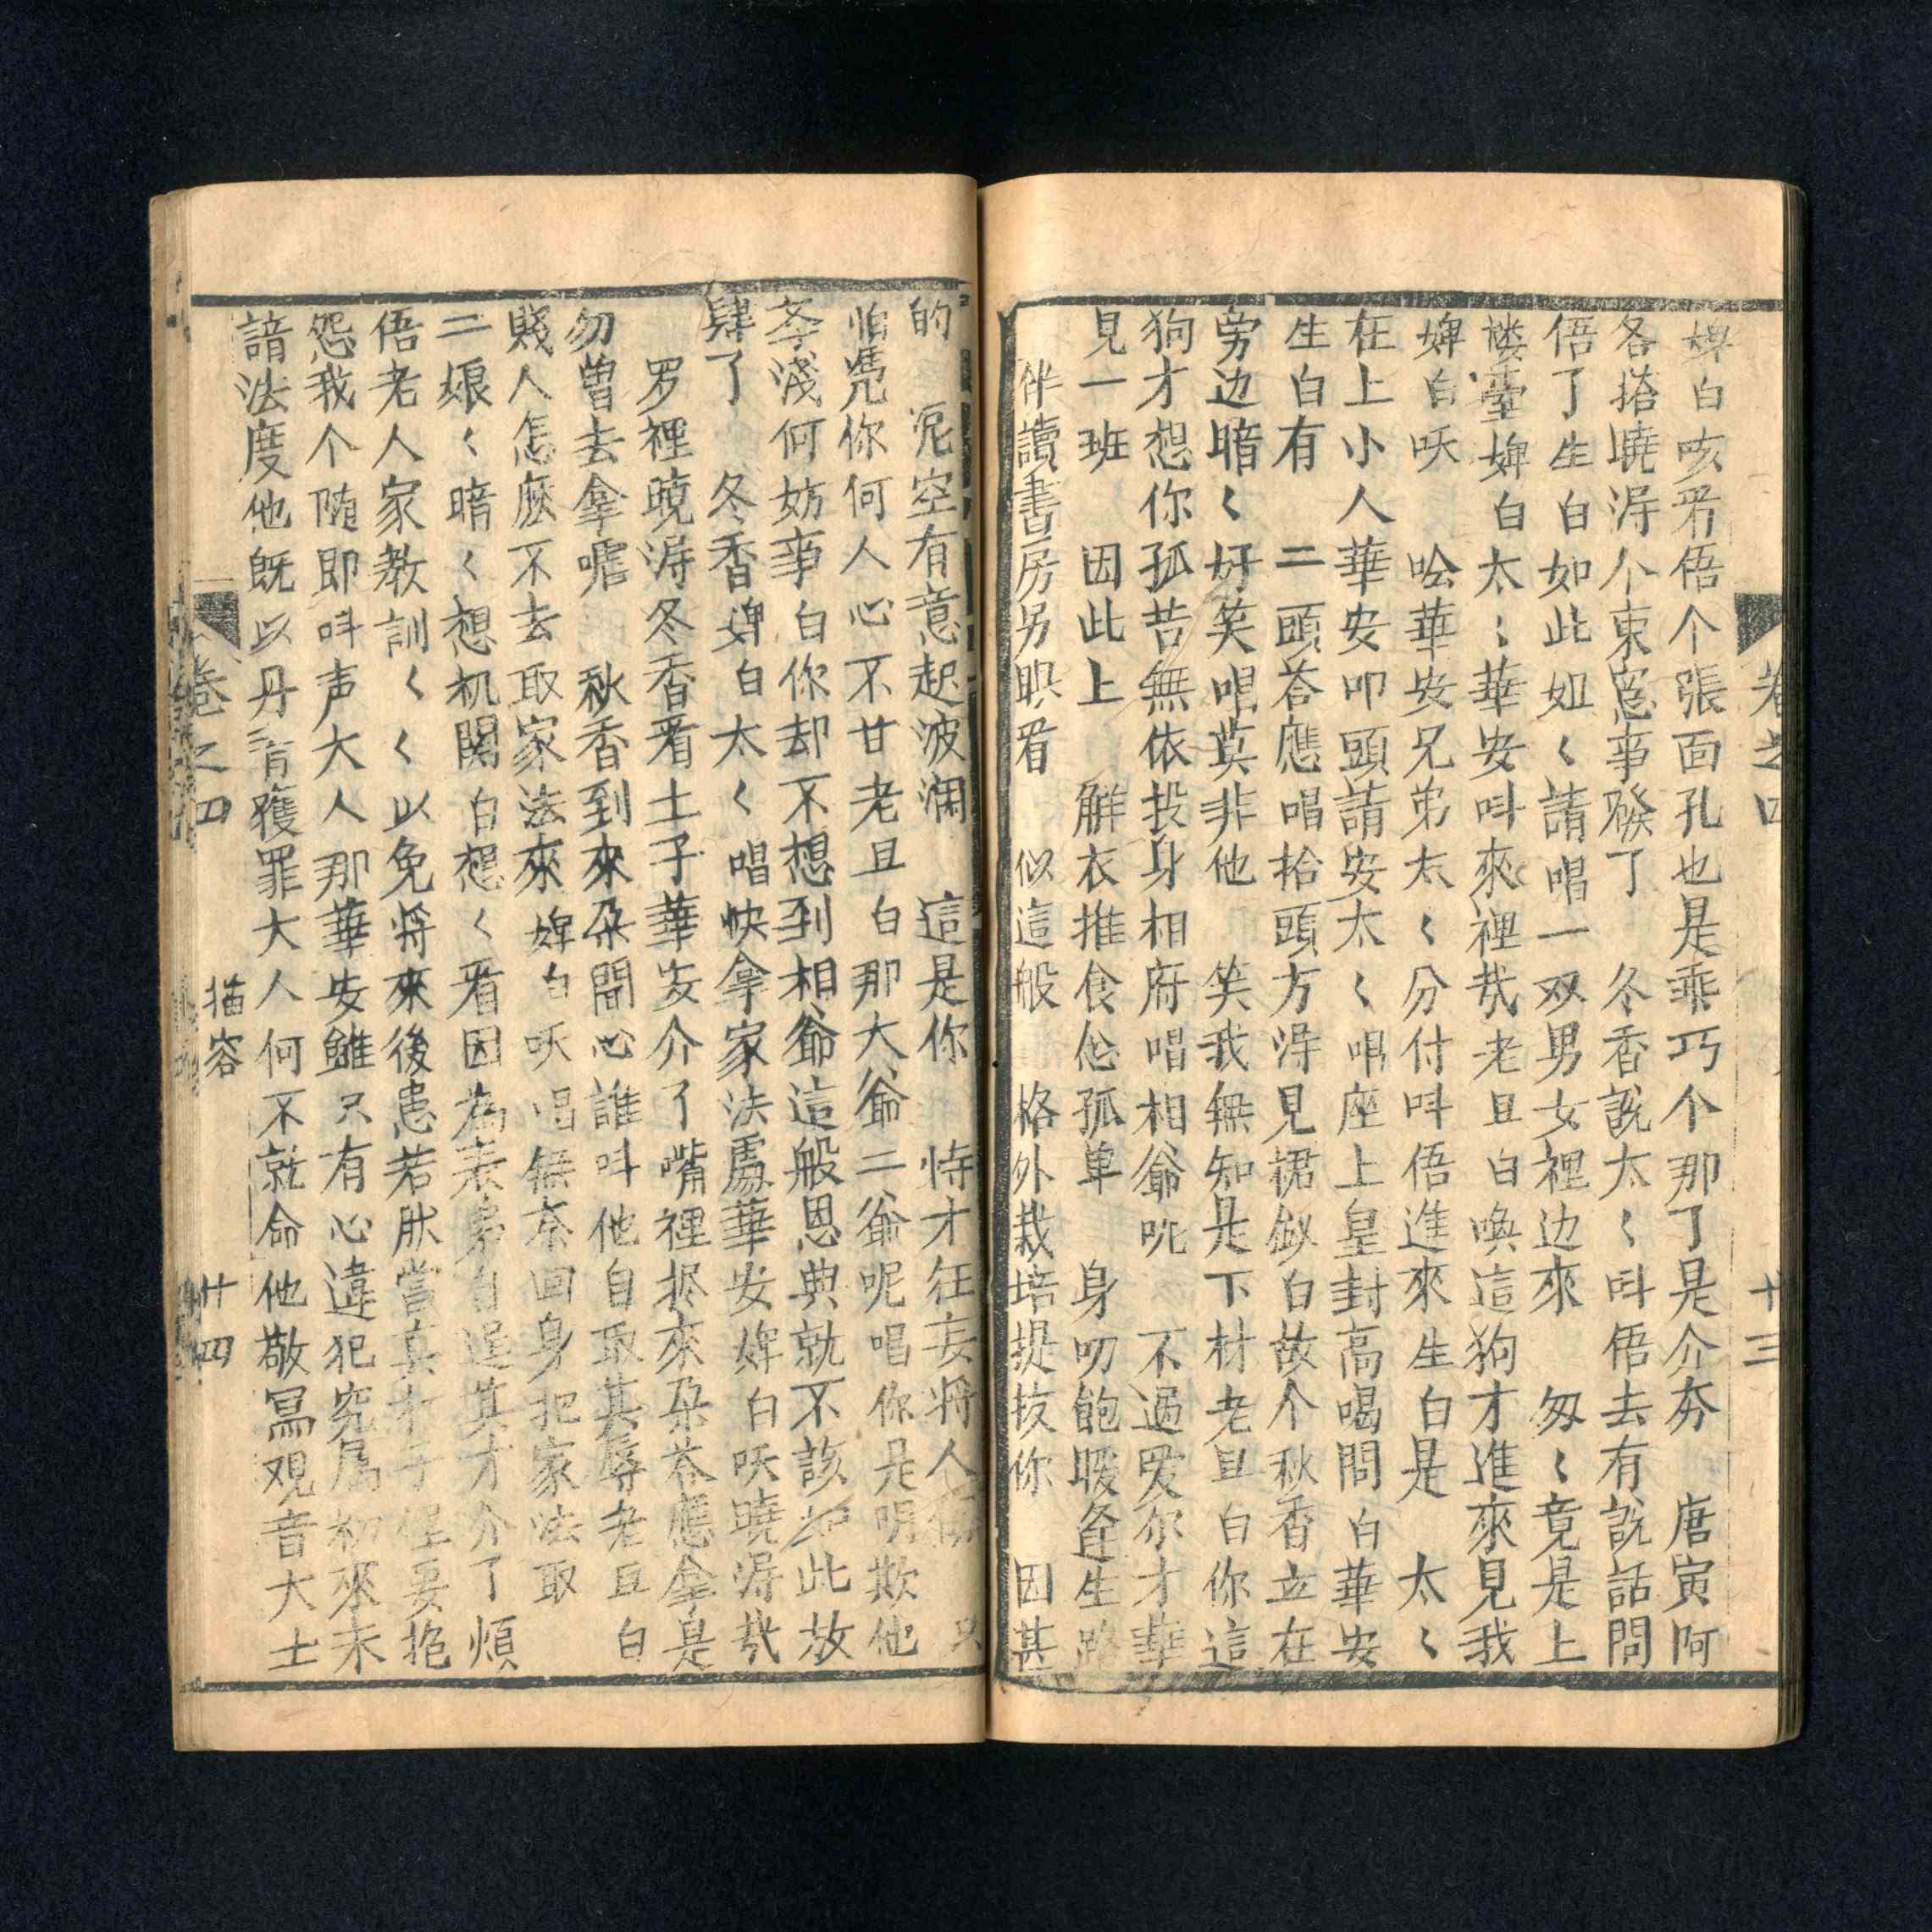 卷之四 十三
婢白咳奀俉个張面孔也是乖巧个那了是介夯 唐寅阿
各搭曉淂个東窓事發了 冬香說太〻呌俉去有說話問
俉了生白如此姐〻請唱一双男女裡边來 匆〻竟是上
楼臺婢白太〻華安呌來裡哉老旦白喚這狗才進來見我
婢白㕭 唫華安兄弟太〻分付呌俉進來生白是 太〻
在上小人華安叩頭請安太〻唱座上皇封高喝問白華安
生白有 二頭荅應唱抬頭方淂見裙釵白故个秋香立在
旁边暗〻好笑唱莫非他 笑我無知是下材老旦白你這
狗才想你孤苦無依投身相府唱相爺呢 不過愛尔才華
見一班 因此上 解衣推食恤孤单 身叨飽暖逢生路
伴讀書房另眼看 似這般 格外栽培提拔你 因甚
的 泥空有意起波瀾 這是你 恃才狂妄將人 只
怕凴你何人心不甘老旦白那大爺二爺呢唱你是明欺他
年淺何妨事白你却不想到相爺這般恩典就不該 此放
肆了 冬香婢白太〻唱快拿家法處華安婢白㕭曉淂哉
罗裡曉淂冬香看土子華安介了嘴裡 來朶荅應拿是
勿曾去拿嚡 秋香到來朶開心誰呌他自取其辱老旦白
賤人怎麽不去取家法來婢白㕭唱無奈回身把家法取
二娘〻暗〻想机関白想〻看因為表弟自逞其才介了煩
俉老人家教訓〻〻以免將來後患若肰當真打于 要抱
怨我个随即呌声大人那華安雖只有心違犯究属初來未
諳法度他旣以丹青獲罪大人何不就命他敬冩观音大士
卷之四 描容 廿四